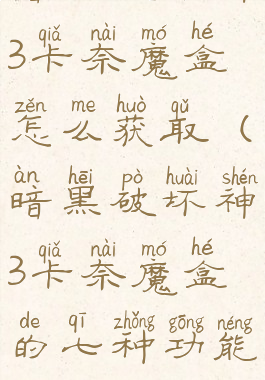 qiǎ nài mó hé
3卡奈魔盒
zěn me huò qǔ
怎么获取（
àn hēi pò huài shén
暗黑破坏神
qiǎ nài mó hé
3卡奈魔盒
de qī zhǒng gōng néng
的七种功能